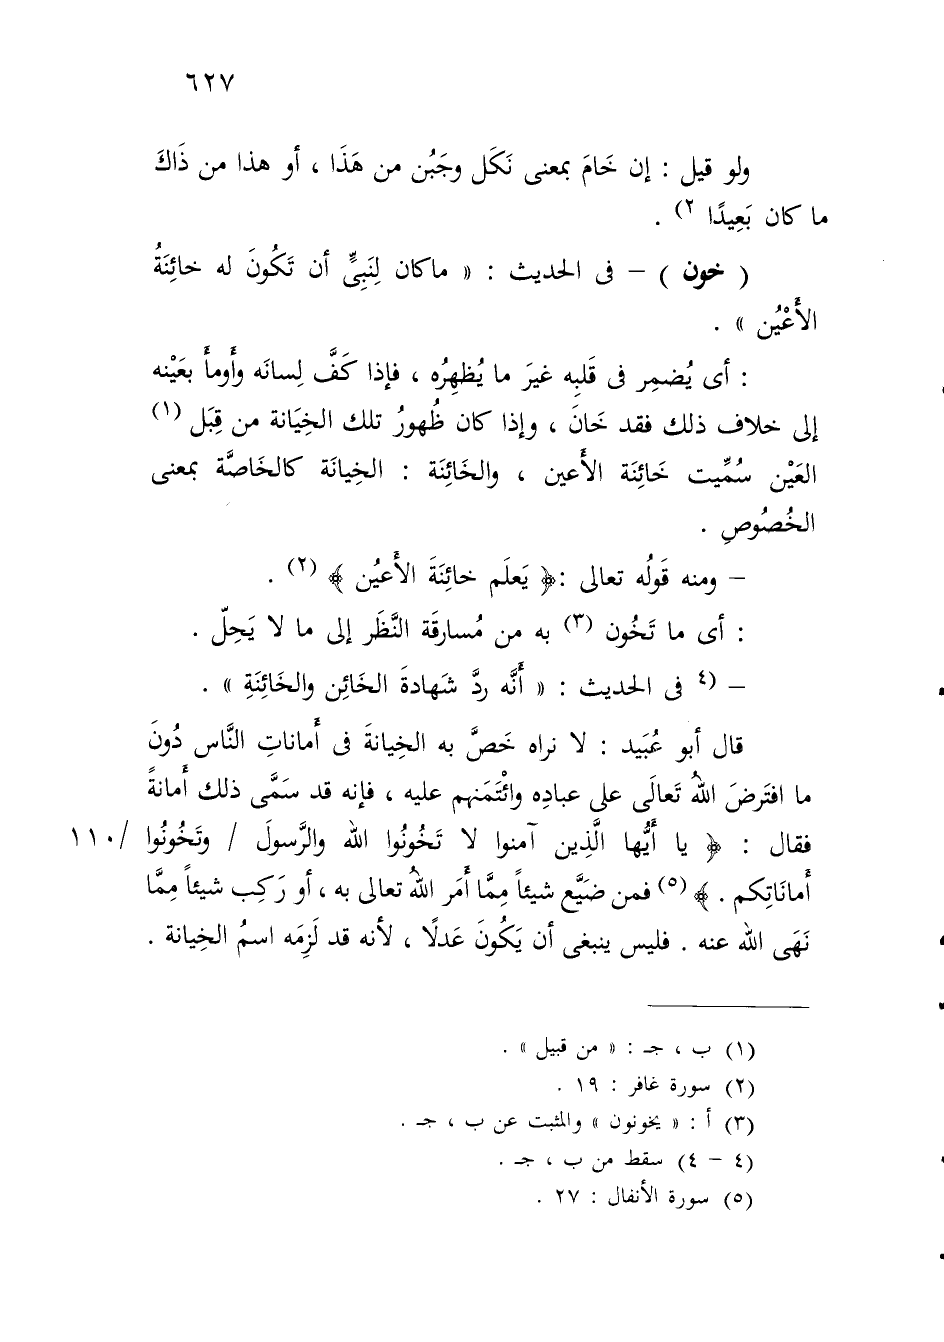 ٦٢٧
ولو قيل : إن خَامَ بمعنى نَكَل وجَبُن من هَذَا ، أو هذا من ذَاكَ
ما كان بَعِيدًا ٢) .
( خون ) – فى الحديث : « ماكان لِنَبِىٍّ أن تَكُونَ له خائِنَةُ
الأَعْيُن » .
: أى يُضمِر فى قَلبِه غيرَ ما يُظهِرُه ، فإذا كَفَّ لِسانَه وأَومأَ بعَيْنه
إلى خلاف ذلك فقد خَانَ ، وإذا كان ظُهورُ تلك الخِيَانة من قِبَل (١)
العَيْن سُمِّيت خَائِنَة الأَعين ، والخَائِنَة : الخِيانَة كالخَاصَّة بمعنى
الخُصُوصِ .
– ومنه قَولُه تعالى :﴿ يَعلَم خائِنَةَ الأَعيُن ﴾ (٢) .
: أى ما تَخُون (٣) به من مُسارقَة النَّظَر إلى ما لا يَحِلّ .
– (٤ فى الحديث : « أَنَّه ردَّ شَهادةَ الخائِن والخَائِنَةِ » .
قال أبو عُبَيد : لا نراه خَصَّ به الخِيانةَ فى أَماناتِ النَّاس دُونَ
ما افتَرضَ اللهُ تَعالَى على عبادِه وائْتَمَنهم عليه ، فإنه قد سَمَّى ذلك أَمانةً
فقال : ﴿ يا أَيُّها الَّذِين آمنوا لا تَخُونُوا الله والرَّسولَ / وتَخُونُوا /١١٠
أَمانَاتِكم . ﴾ (٥) فمن ضَيَّع شيئاً مِمَّا أَمَر اللهُ تعالى به ، أو رَكِب شيئاً مِمَّا
نَهَى الله عنه . فليس ينبغى أن يَكُونَ عَدلًا ، لأنه قد لَزِمَه اسمُ الخِيانة .
(١) ب ، جـ : « من قبيل » .
(٢) سورة غافر : ١٩ .
(٣) أ : « يخونون » والمثبت عن ب ، جـ .
(٤ – ٤) سقط من ب ، جـ .
(٥) سورة الأنفال : ٢٧ .